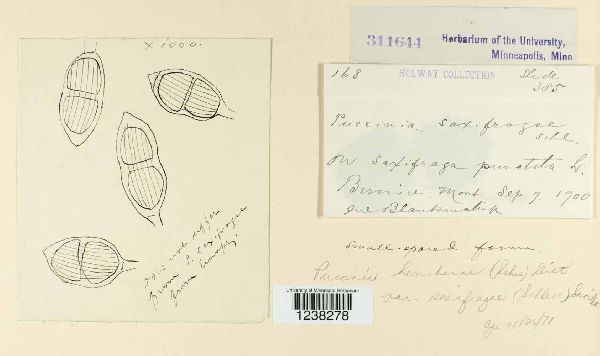 X 1000.
does not differ
from P. saxifragae
from
311644 Herbarium of the University,
Minneapolis, Minn
168 HOLWAY COLLECTION Slide
385
Puccinia saxifragae
Schl.
On Saxifraga punctata L.
Mont. Sep 7 1900
small-spored form
Puccinia heucherae (Schw.) Diet
var. saxifragae (Schlecht) Savile
University of Minnesota Herbarium
1238278